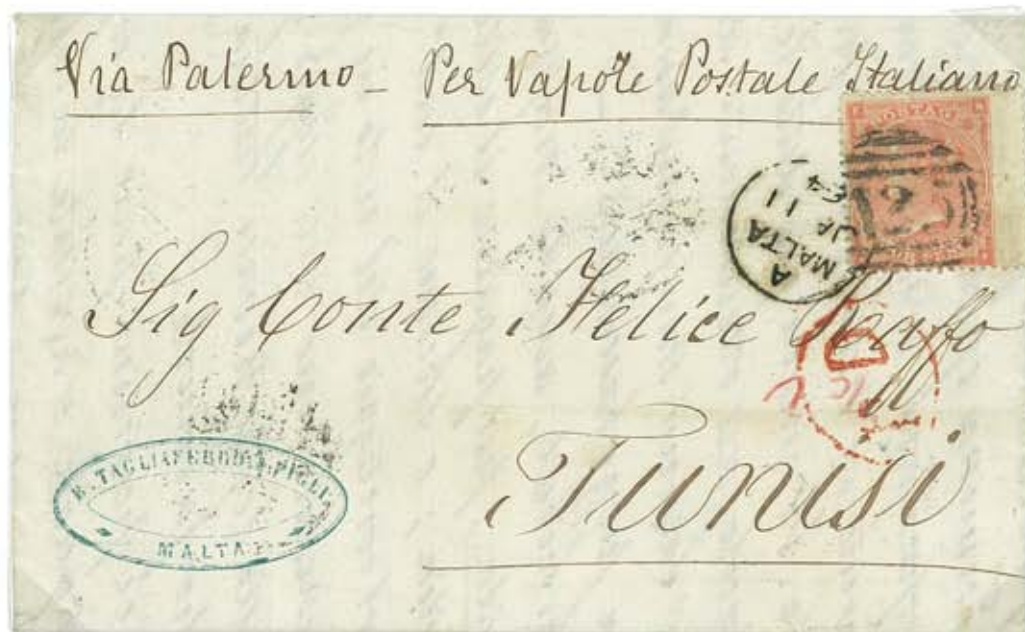 Via Palermo - Per Vapore Postale Italiano
POSTAG
25
A
MALTA
JA 11
64
Sig Conte Felice Raffo
PD
Tunisi
E. TAGLIAFERRO & FIGLI.
MALTA